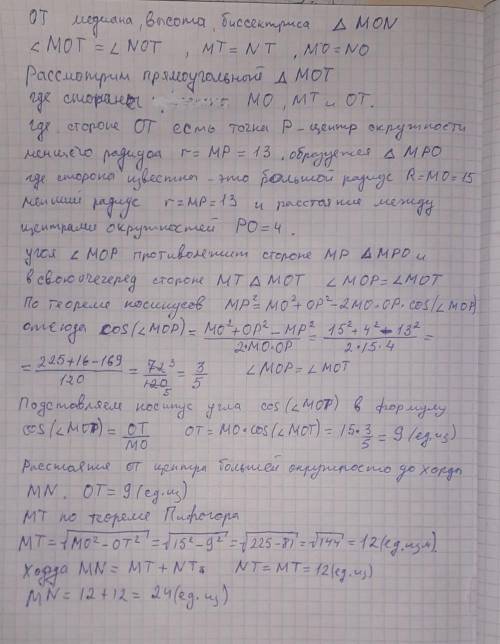 ОТ медиана, высота, биссектриса △ MON
∠MOT = ∠NOT , MT = NT , MO = NO
Рассмотрим прямоугольный △ MOT
где стороны MO , MT и OT.
где стороне OT есть точка P - центр окружности
меньшего радиуса r = MP = 13 , образуется △ MPO
где сторона известны - это большой радиус R = MO = 15
меньший радиус r = MP = 13 и расстояние между
центрами окружностей PO = 4 .
угол ∠ MOP противолежит стороне MP △ MPO и
в свою очеред стороне MT △ MOT ∠ MOP = ∠MOT
По теореме косинусов MP² = MO² + OP² - 2MO·OP·cos(∠MOP)
отсюда cos(∠MOP) = (MO² + OP² - MP²)/(2·MO·OP) = (15² + 4² - 13²)/(2·15·4) =
= (225 + 16 - 169)/120 = 72/120 = 3/5 ∠MOP = ∠MOT
Подставляем косинус угла cos(∠MOT) в формулу
cos(∠MOT) = OT/MO OT = MO·cos(∠MOT) = 15·3/5 = 9 (ед.из)
Расстояние от центра большей окружности до хорды
MN . OT = 9 (ед.из)
MT по теореме Пифогора
MT = √(MO² - OT²) = √(15² - 9²) = √(225 - 81) = √144 = 12 (ед.изм).
Хорда MN = MT + NT. NT = MT = 12 (ед.из)
MN = 12 + 12 = 24 (ед.из)